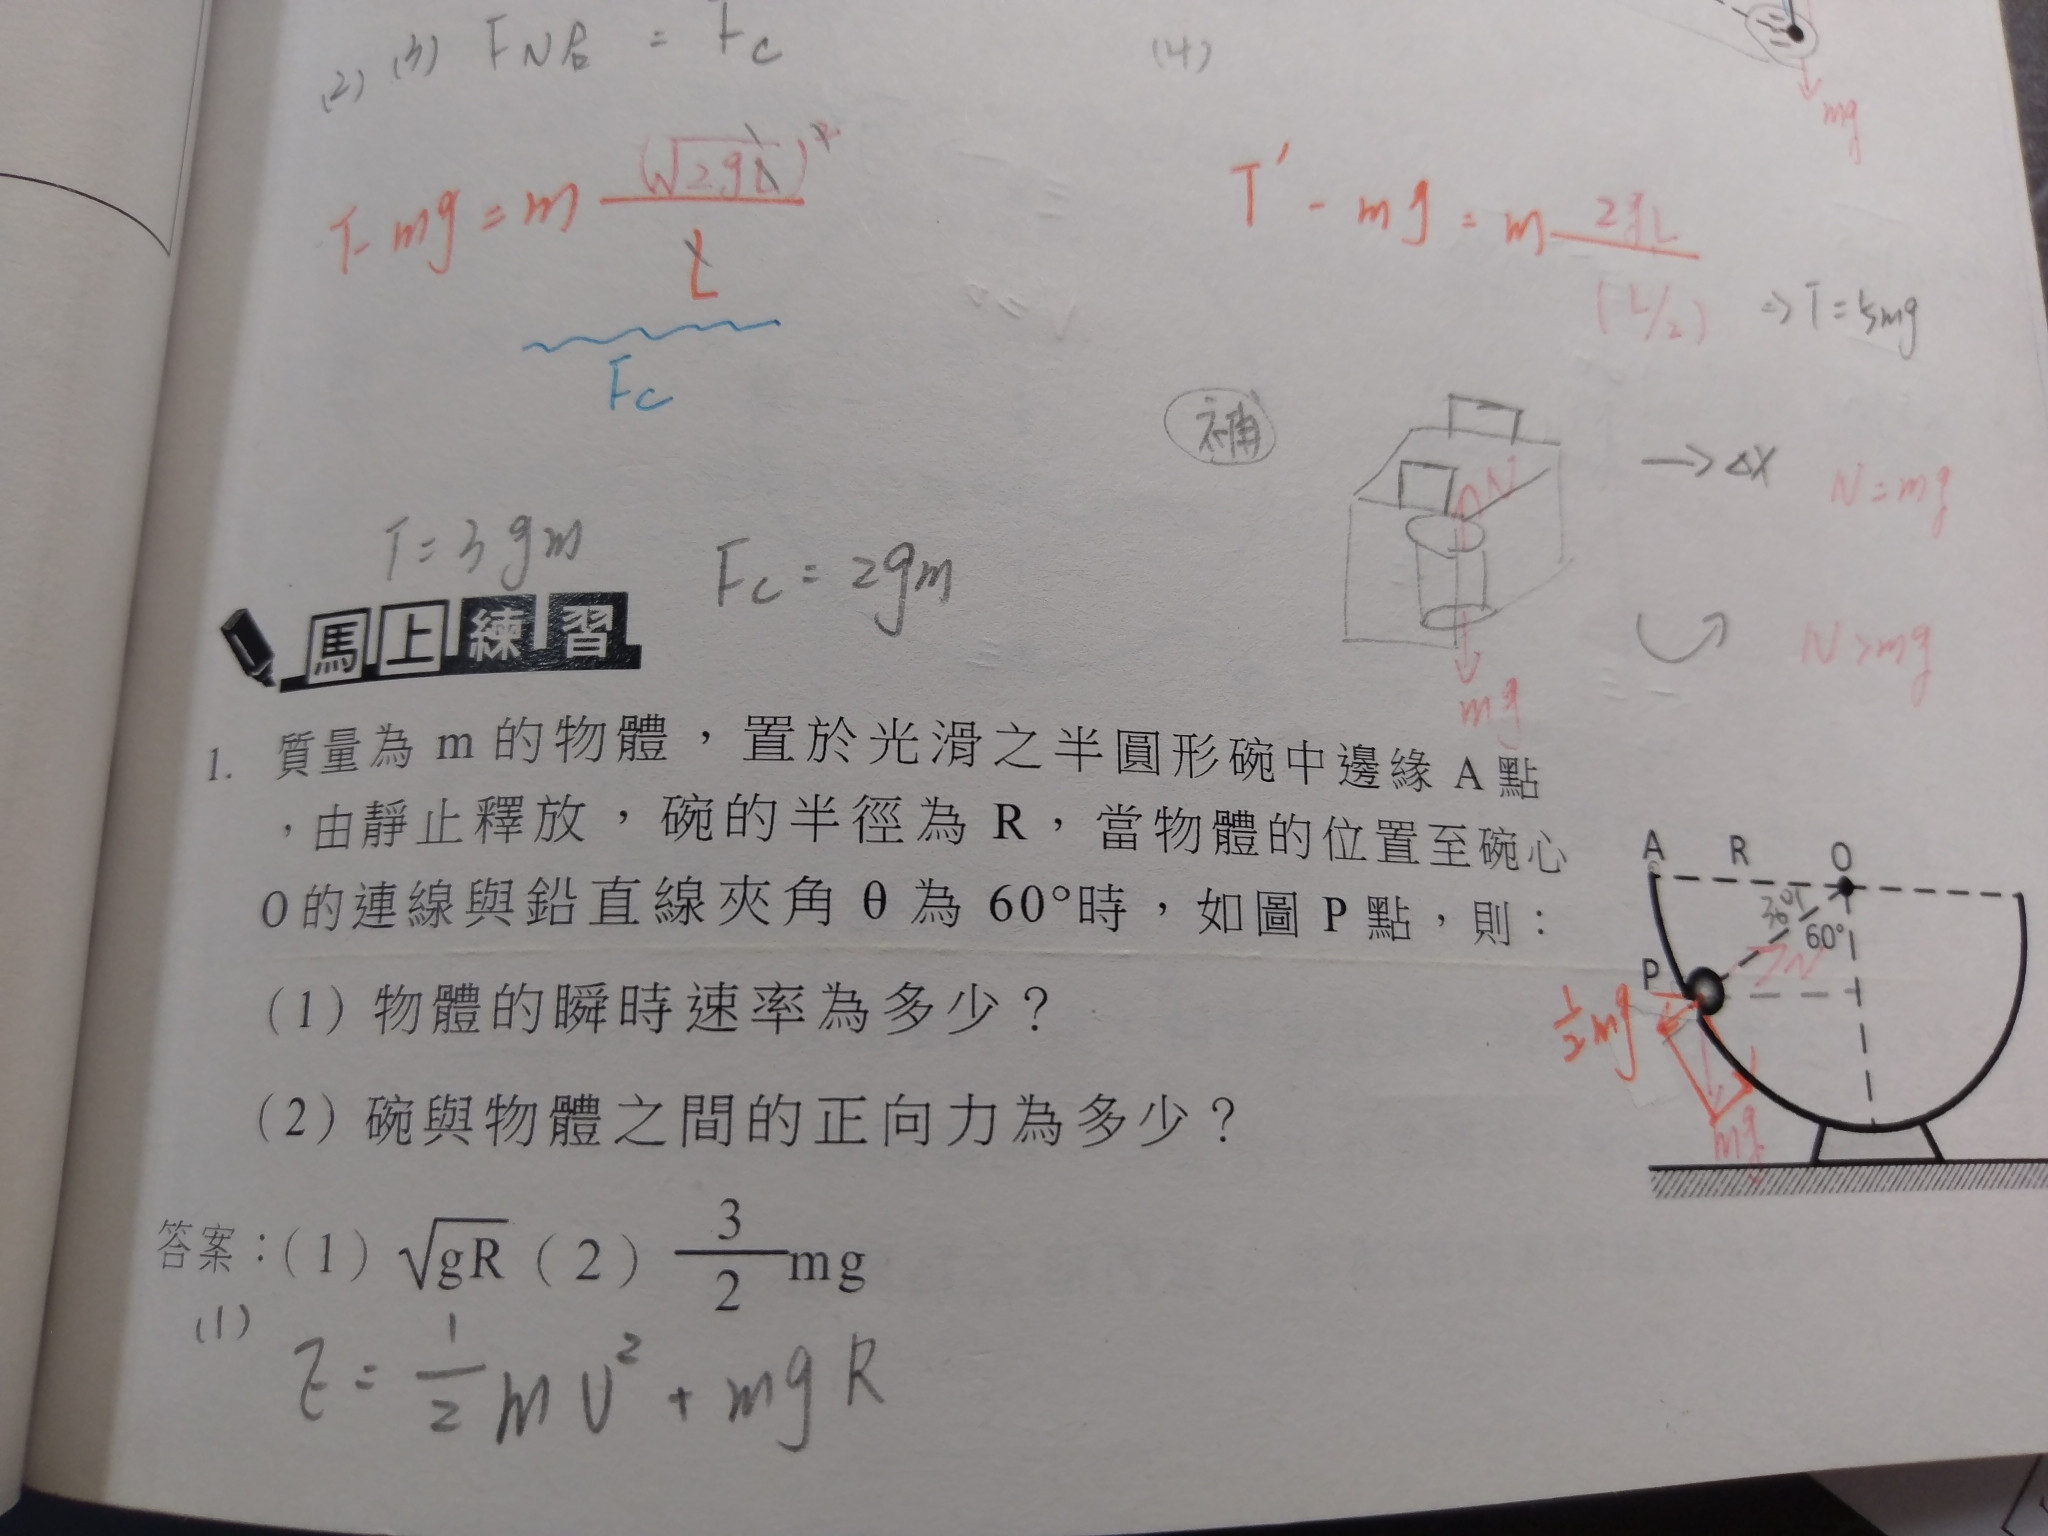 (2) (3) FN合 = Fc
(4)
mg
T - mg = m (√2gL)² / L
Fc
T' - mg = m 2gL / (L/2) ⇒ T = 5mg
補
N
→ ΔX N = mg
N > mg
mg
T = 3gm
Fc = 2gm
馬上練習
1. 質量為 m 的物體，置於光滑之半圓形碗中邊緣 A 點
，由靜止釋放，碗的半徑為 R，當物體的位置至碗心
O 的連線與鉛直線夾角 θ 為 60°時，如圖 P 點，則：
(1) 物體的瞬時速率為多少？
(2) 碗與物體之間的正向力為多少？
A R O
30°
60°
N
P
1/2 mg
mg
答案：(1) √gR (2) 3/2 mg
(1)
E = 1/2 m v² + mgR